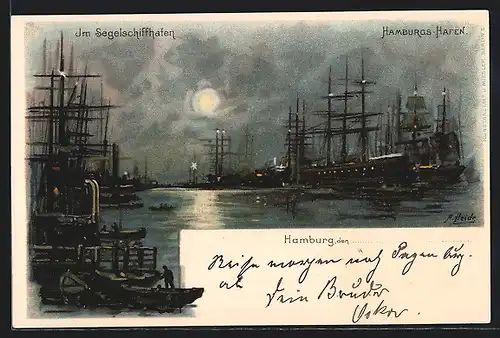 Im Segelschiffhafen
HAMBURGS HAFEN.
Hamburg, den
Reise morgen nach Hagen
ab
Dein Bruder
Oskar.